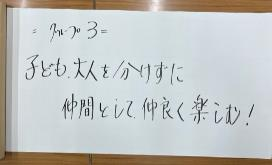 = グループ3 =
子ども、大人を分けずに
仲間として、仲良く楽しむ!